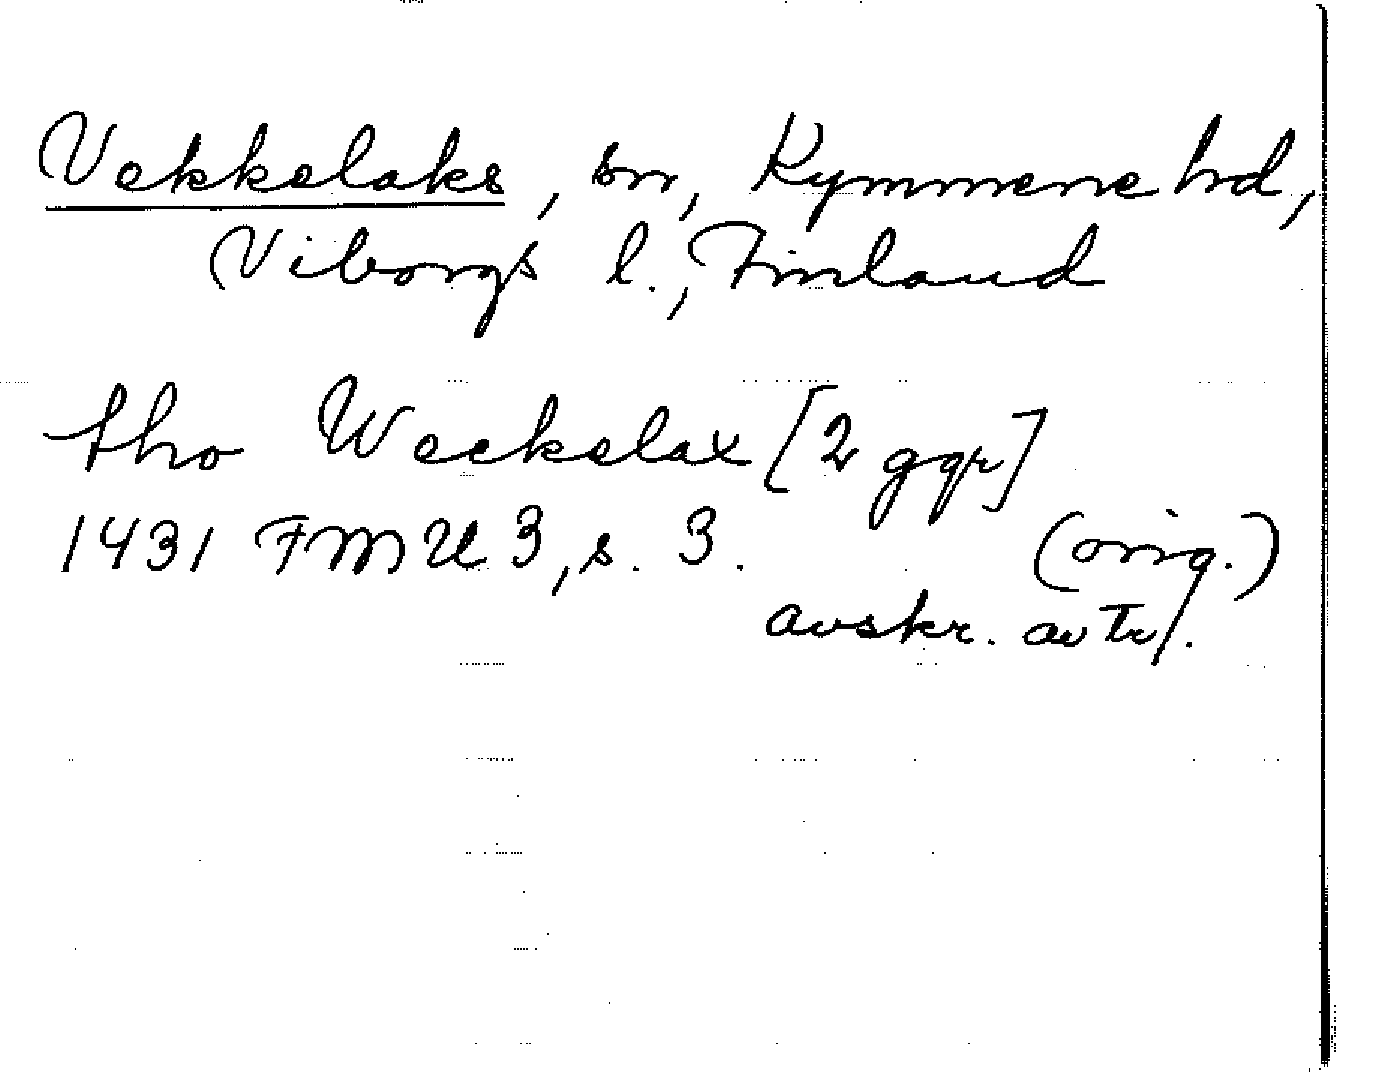 Vekkelaks, sn, Kymmene hd,
Viborgs l., Finland
tho Weckelax [2 ggr]
1431 FMU 3, s. 3. (orig.)
avskr. av Tr/.